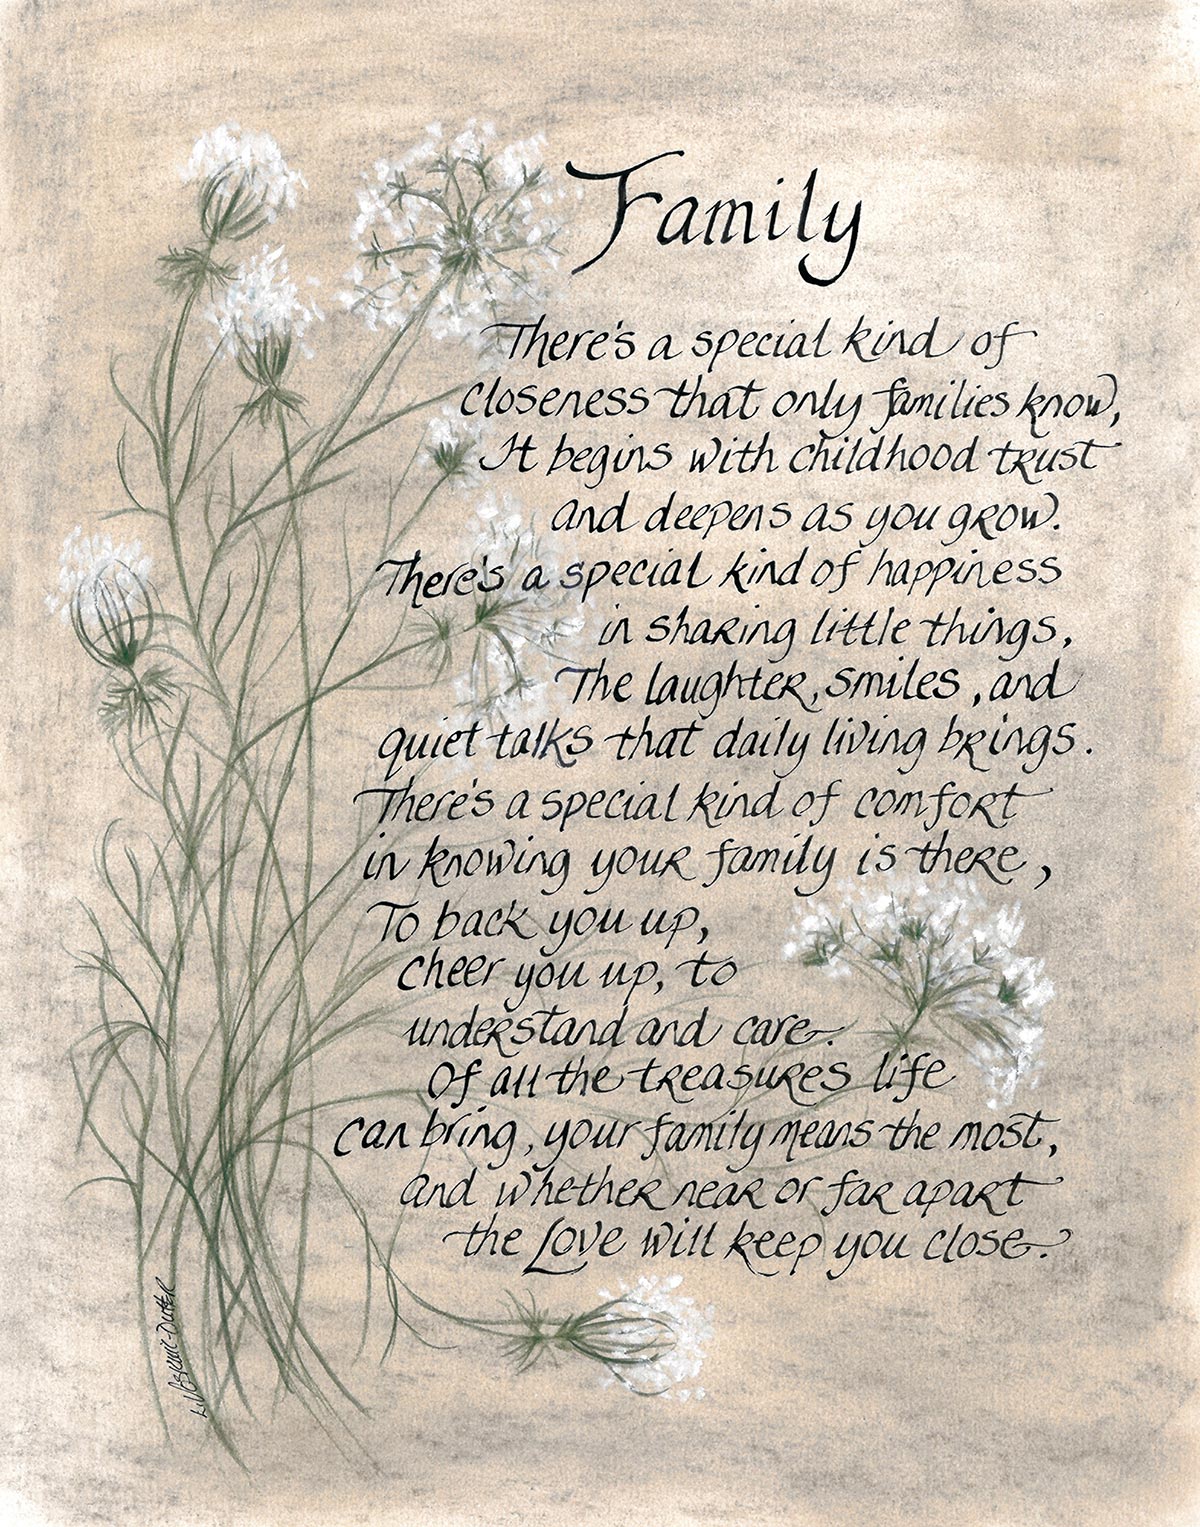 Family
There's a special kind of
closeness that only families know,
It begins with childhood trust
and deepens as you grow.
There's a special kind of happiness
in sharing little things,
The laughter, smiles, and
quiet talks that daily living brings.
There's a special kind of comfort
in knowing your family is there,
To back you up,
cheer you up, to
understand and care.
Of all the treasures life
can bring, your family means the most,
and whether near or far apart
the Love will keep you close.